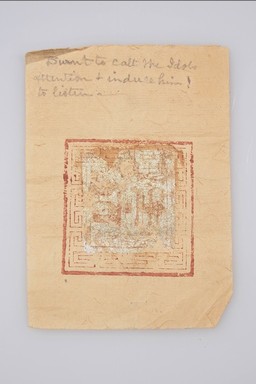 Burnt to call the Idols
attention & induce him
to listen -